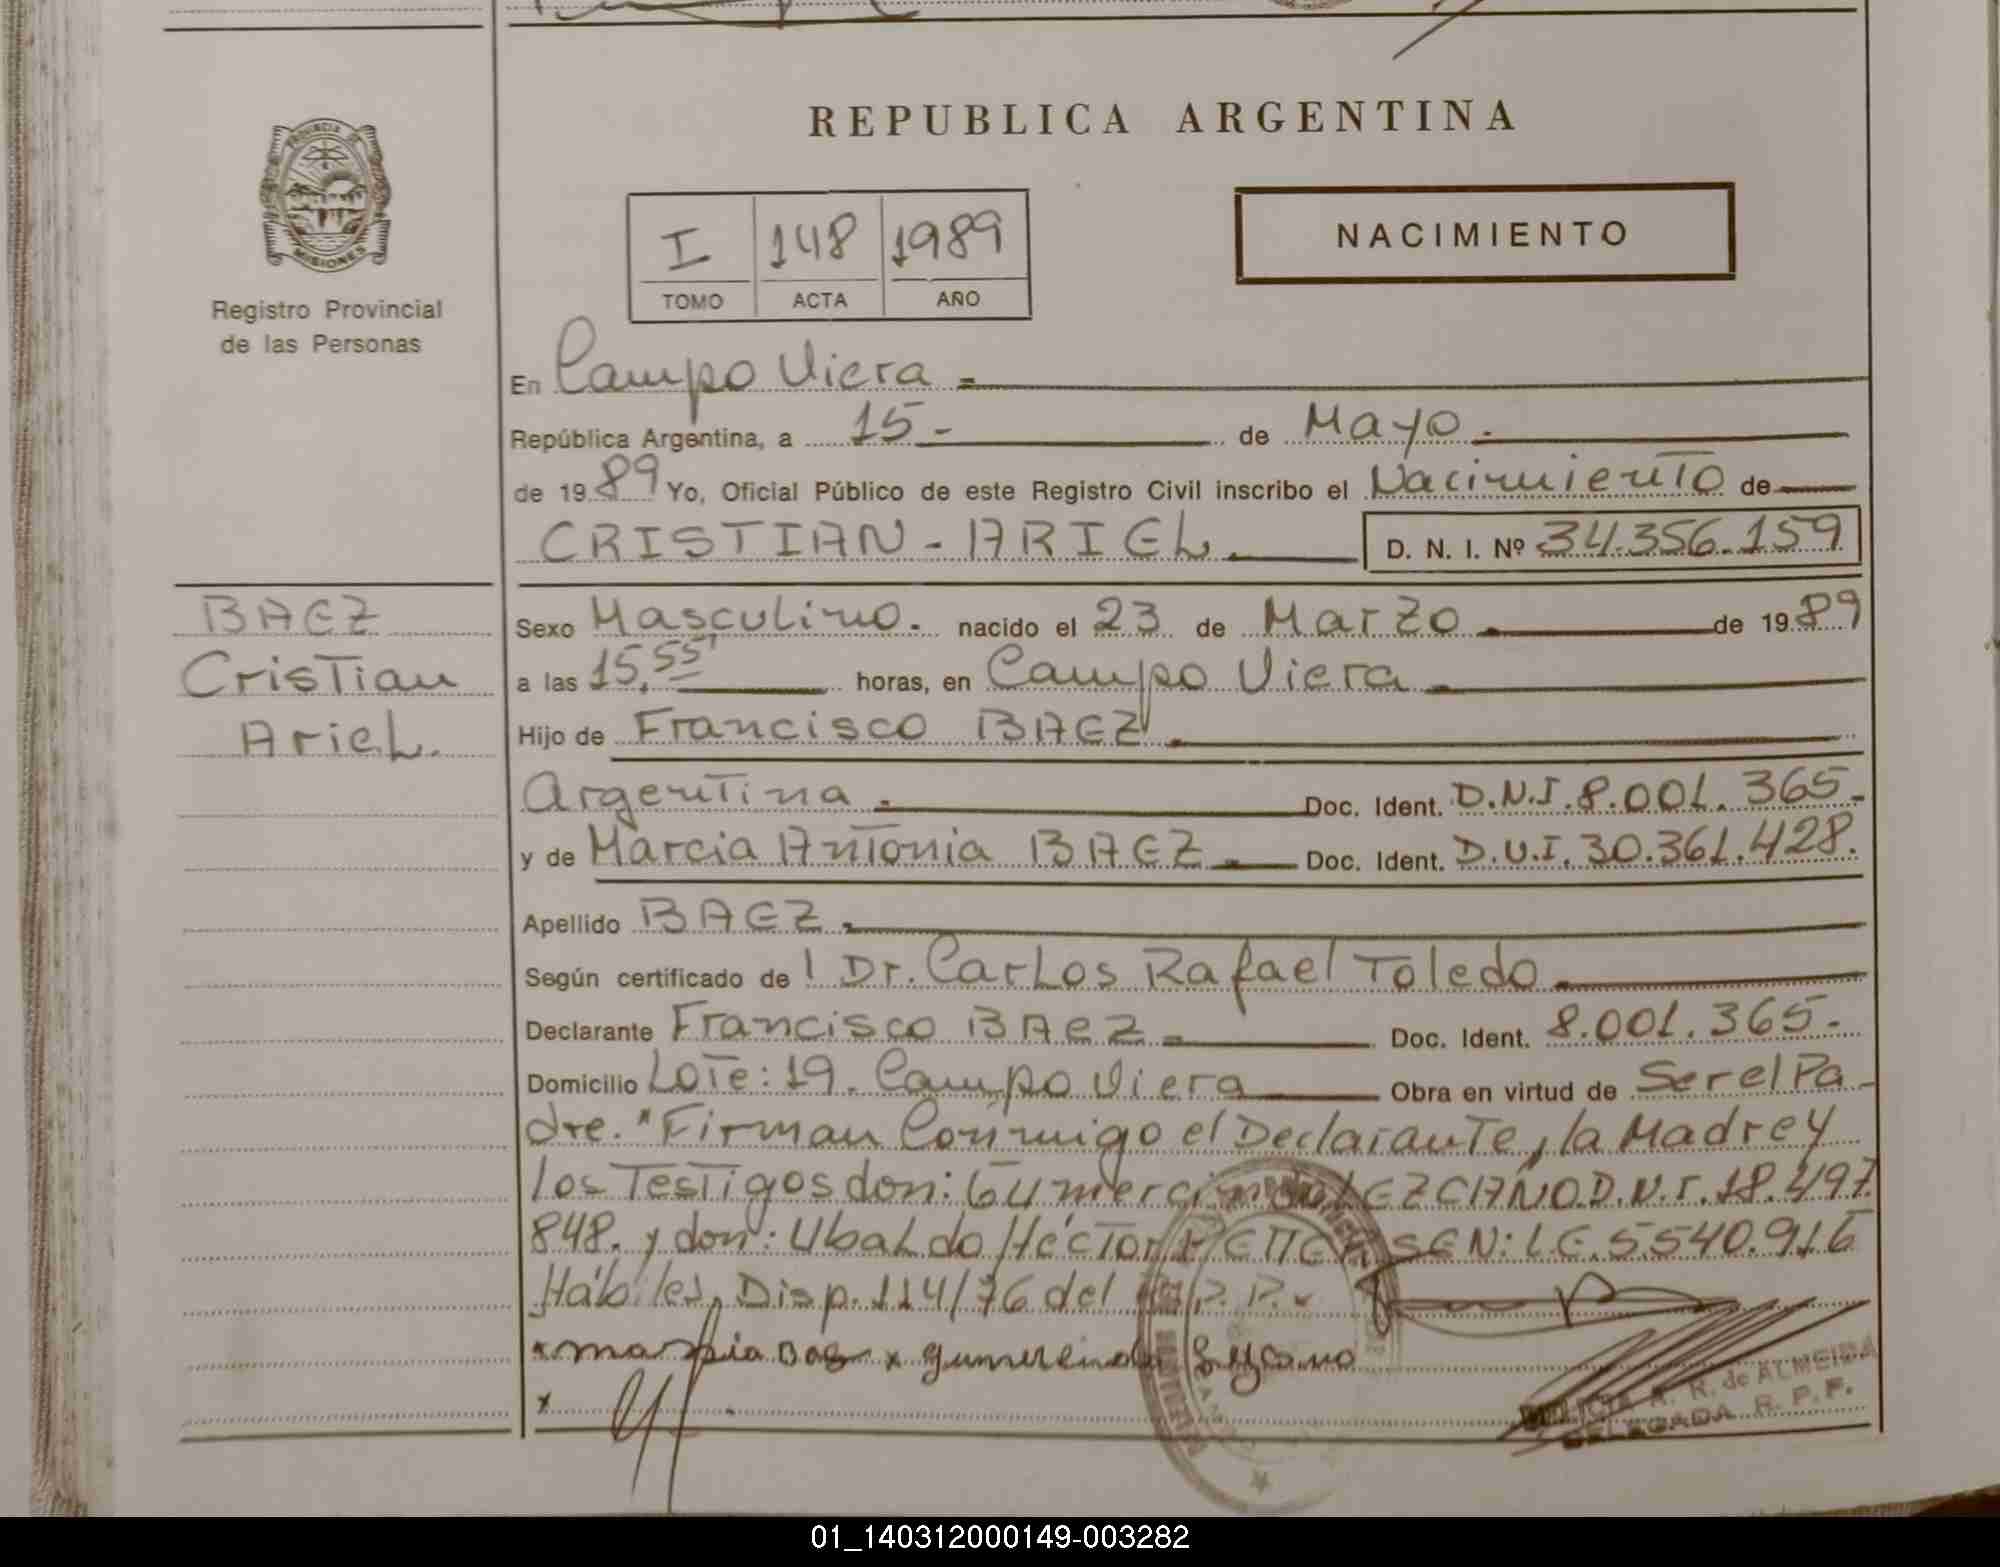 REPUBLICA ARGENTINA
PROVINCIA DE
MISIONES
Registro Provincial
de las Personas
I 148 1989
TOMO ACTA AÑO
NACIMIENTO
En Campo Viera
República Argentina, a 15- de Mayo.
de 19 89 Yo, Oficial Público de este Registro Civil inscribo el Nacimiento de
CRISTIAN - ARIEL. D. N. I. Nº 34.356.159
BAEZ
Cristian
Ariel.
Sexo Masculino. nacido el 23 de Marzo de 19 89
a las 15,55' horas, en Campo Viera
Hijo de Francisco BAEZ
Argentina. Doc. Ident. D.N.I. 8.001.365-
y de Marcia Antonia BAEZ. Doc. Ident. D.U.I. 30.361.428.
Apellido BAEZ.
Según certificado de l Dr. Carlos Rafael Toledo
Declarante Francisco BAEZ Doc. Ident. 8.001.365-
Domicilio Lote: 19. Campo Viera Obra en virtud de Ser el Pa-
dre. "Firman Conmigo el Declarante, la Madre y
los Testigos don: Gumercindo LEZCANO D.N.I. 18.497.
848. y don: Ubaldo Héctor PETTERSEN: L.E. 5.540.916
Hábiles, Disp. 114/76 del R.P.P.
x x gumercindo
x
A. R. de ALMEIDA
DELEGADA R. P. P.
01_140312000149-003282